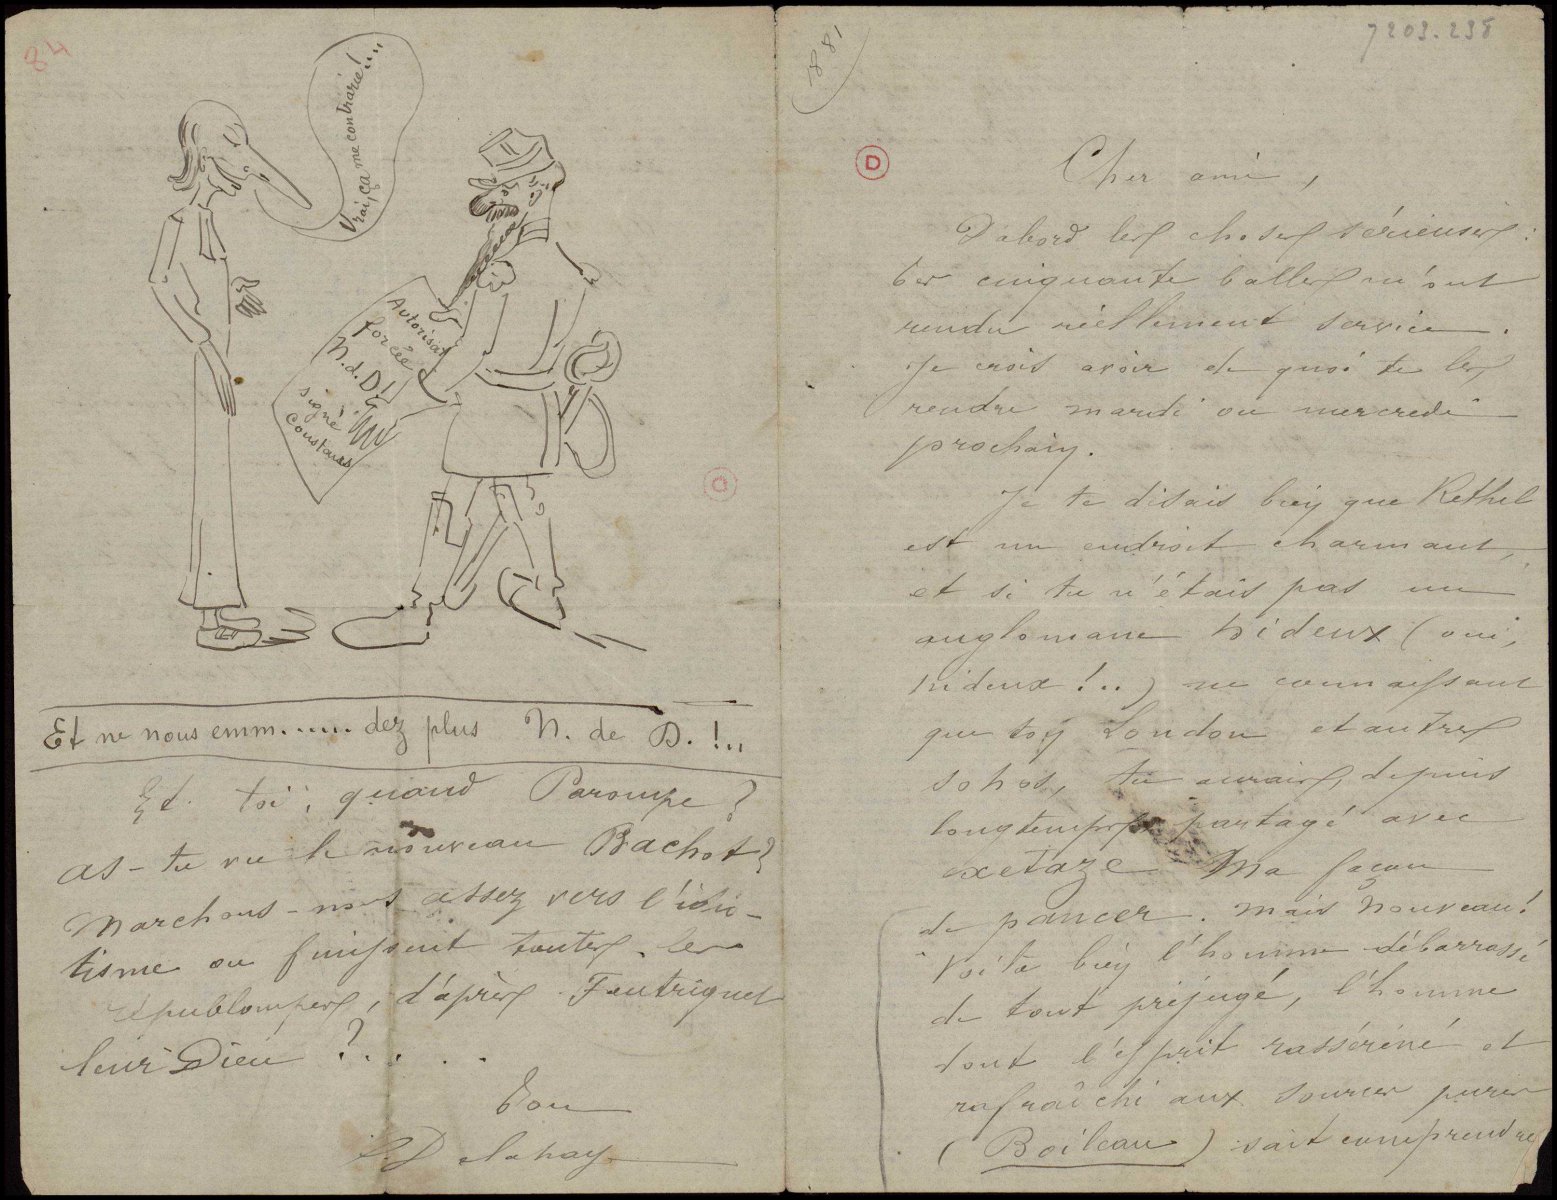 84
Vrai, ça me contrarie!...
Autorisat
forcée
N. d. D!
signé
Constans
Et ne nous emm...... dez plus N. de D. !..
Et toi, quand Paroupe ?
as-tu vu le nouveau Bachot?
marchons-nous assez vers l'idio-
tisme où finissent toutes les
républompes, d'après Feutriquet
leur Dieu ?....
Ton
E Delahay
1881
7203.238
D
Cher ami,
D'abord les choses sérieuses :
tes cinquante balles m'ont
rendu réellement service.
Je crois avoir de quoi te les
rendre mardi ou mercredi
prochain.
Je te disais bien que Rethel
est un endroit charmant,
et si tu n'étais pas un
anglomane hideux (oui,
hideux !..) ne connaissant
que ton London et autres
sohos, tu aurais, depuis
longtemps partagé avec
extaze Ma façon
de pancer. mais nouveau!
Voilà bien l'homme débarrassé
de tout préjugé, l'homme
dont l'esprit rasséréné et
rafraîchi aux sources pures
(Boileau) sait comprendre